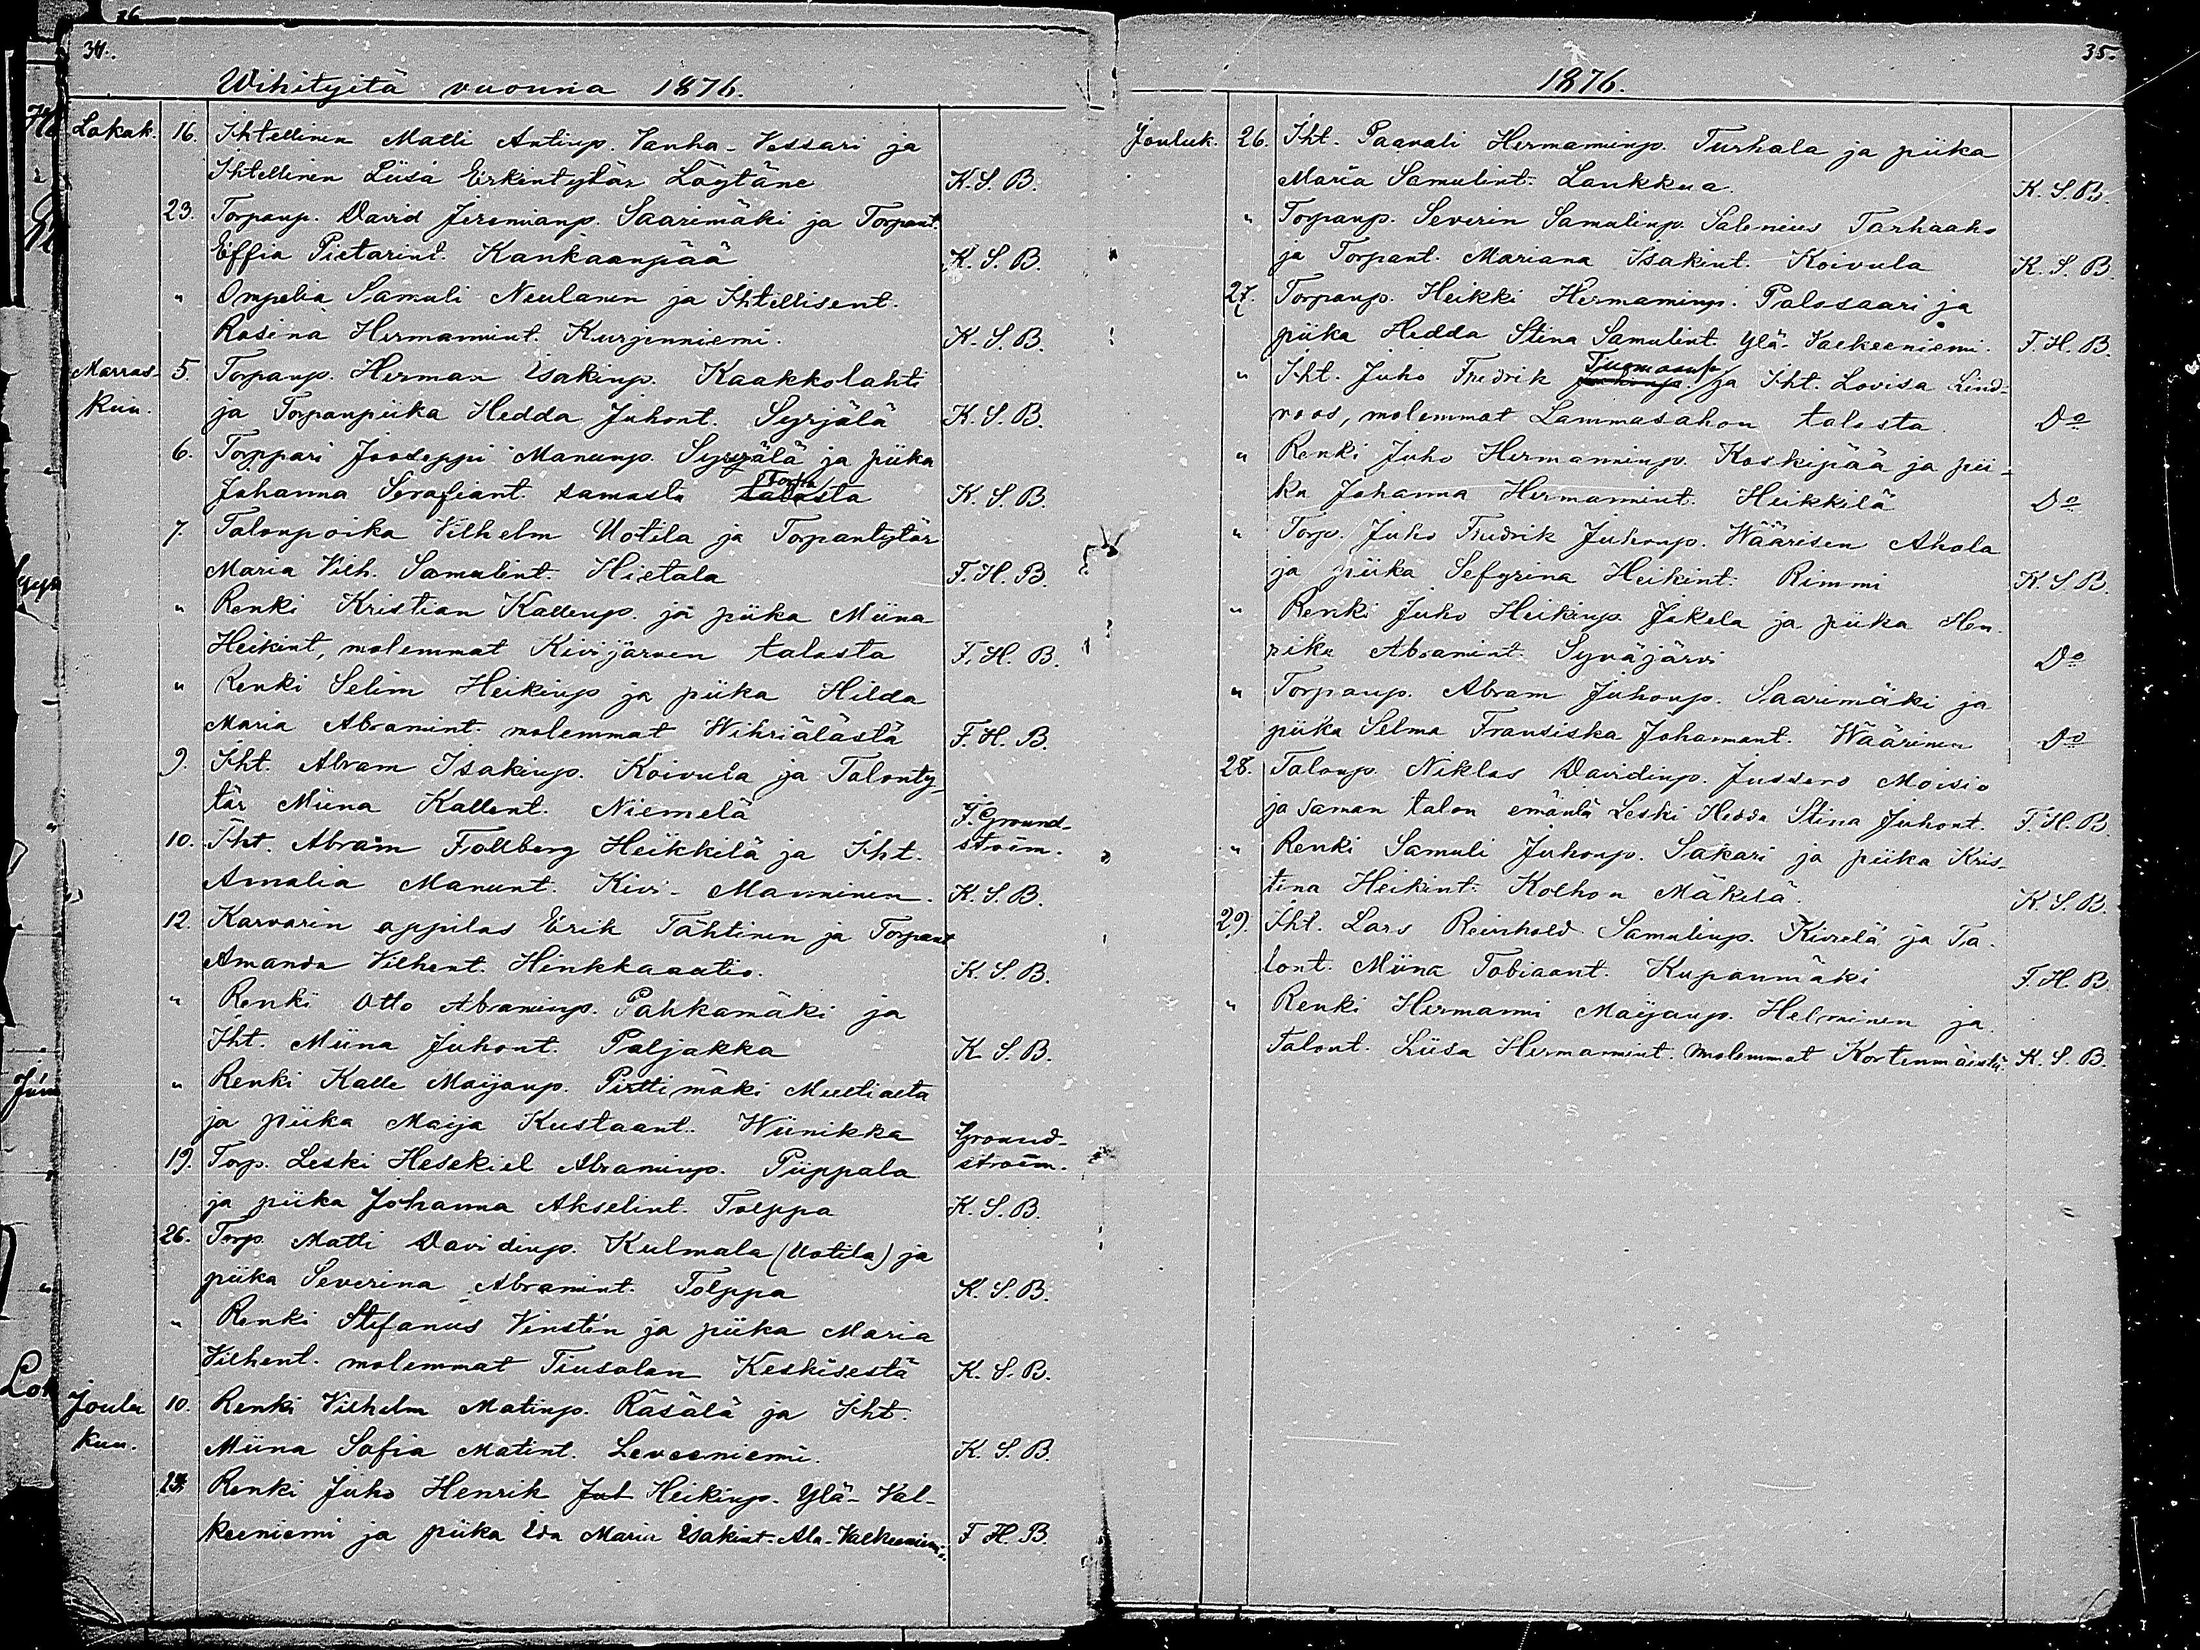 34.
Wihityitä vuonna 1876.
Lokak. 16. Ihtellinen Matti Antinp. Vanha-Vessari ja
Ihtellinen Liisa Erkintytär Löytäne K. S. B.
23. Torpanp. David Jeremianp. Saarimäki ja Torpant.
Effia Pietarint. Kankaanpää K. S. B.
" Ompelia Samuli Neulanen ja Ihtellisent.
Rosina Hermannint. Kurjenniemi. K. S. B.
Marras- 5. Torpanp. Herman Isakinp. Kaakkolahti
kuu. ja Torpanpiika Hedda Juhont. Syrjälä K. S. B.
6. Torppari Jooseppi Manunp. Syrjälä ja piika
Johanna Serafiant. samasta Torpa K. S. B.
7. Talonpoika Vilhelm Uotila ja Torpantytär
Maria Vilh. Samulint. Hietala F. H. B.
" Renki Kristian Kallenp. ja piika Miina
Heikint, molemmat Kivijärven talosta F. H. B.
" Renki Selim Heikinp ja piika Hilda
Maria Abramint. molemmat Wihriälästä F. H. B.
9. Iht. Abram Isakinp. Koivula ja Talonty-
tär Miina Kallent. Niemelä F. Ground-
10. Iht. Abram Follberg Heikkilä ja Iht. stroem.
Amalia Manunt. Kivi-Manninen. K. S. B.
12. Karvarin oppilas Erik Tähtinen ja Torpant
Amanda Vilhent. Hinkkaautio. K. S. B.
" Renki Otto Abraminp. Pahkamäki ja
Iht. Miina Juhont. Paljakka K. S. B.
" Renki Kalle Maijanp. Pirttimäki Multialta
ja piika Maija Kustaant. Wiinikka Ground-
19. Torp. Leski Hesekiel Abraminp. Piippala stroem.
ja piika Johanna Akselint. Tolppa K. S. B.
26. Torp. Matti Davidinp. Kulmala (Uotila) ja
piika Severina Abramint. Tolppa K. S. B.
" Renki Stefanus Vinstén ja piika Maria
Vilhent. molemmat Tiusalan Keskisestä K. S. B.
Joulu 10. Renki Vilhelm Matinp. Räsälä ja Iht.
kuu. Miina Sofia Matint. Leveeniemi. K. S. B.
Renki Juho Henrik Juh Heikinp. Ylä-Val-
keeniemi ja piika Eda Maria Isakint. Ala-Valkeeniemi. F. H. B.
35.
1876.
Jouluk. 26. Iht. Paavali Hermaninp. Turhala ja piika
Maria Samulint. Laukkua. K. S. B.
" Torpanp. Severin Samulinp. Salenius Tarhaaho
ja Torpant. Mariana Isakint. Koivula K. S. B.
27. Torpanp. Heikki Hermaninp. Palosaari ja
piika Hedda Stina Samulint. Ylä-Valkeeniemi. F. H. B.
" Iht. Juho Fredrik Tuomaanp ja Iht. Lovisa Lind-
roos, molemmat Lammasahon talosta. Do
" Renki Juho Hermanninp. Koskipää ja pii-
ka Johanna Hermannint. Heikkilä Do
" Torp. Juho Fredrik Juhonp. Wäärisen Ahola
ja piika Sefyrina Heikint. Rimmi K. S. B.
" Renki Juho Heikinp. Jokela ja piika Hen-
rika Abramint. Syväjärvi Do
" Torpanp. Abram Juhonp. Saarimäki ja
piika Selma Fransiska Johannant. Wäärinen Do
28. Talonp. Niklas Davidinp. Jussero Moisio
ja saman talon emäntä Leski Hedda Stina Juhont. F. H. B.
" Renki Samuli Juhonp. Sakari ja piika Kris-
tina Heikint. Kolhon Mäkelä. K. S. B.
29. Iht. Lars Reinhold Samulinp. Kivelä ja Ta-
lont. Miina Tobiaant. Kupanmäki F. H. B.
" Renki Hermanni Maijanp. Helminen ja
Talont. Liisa Hermannint. molemmat Kortenmäestä. K. S. B.